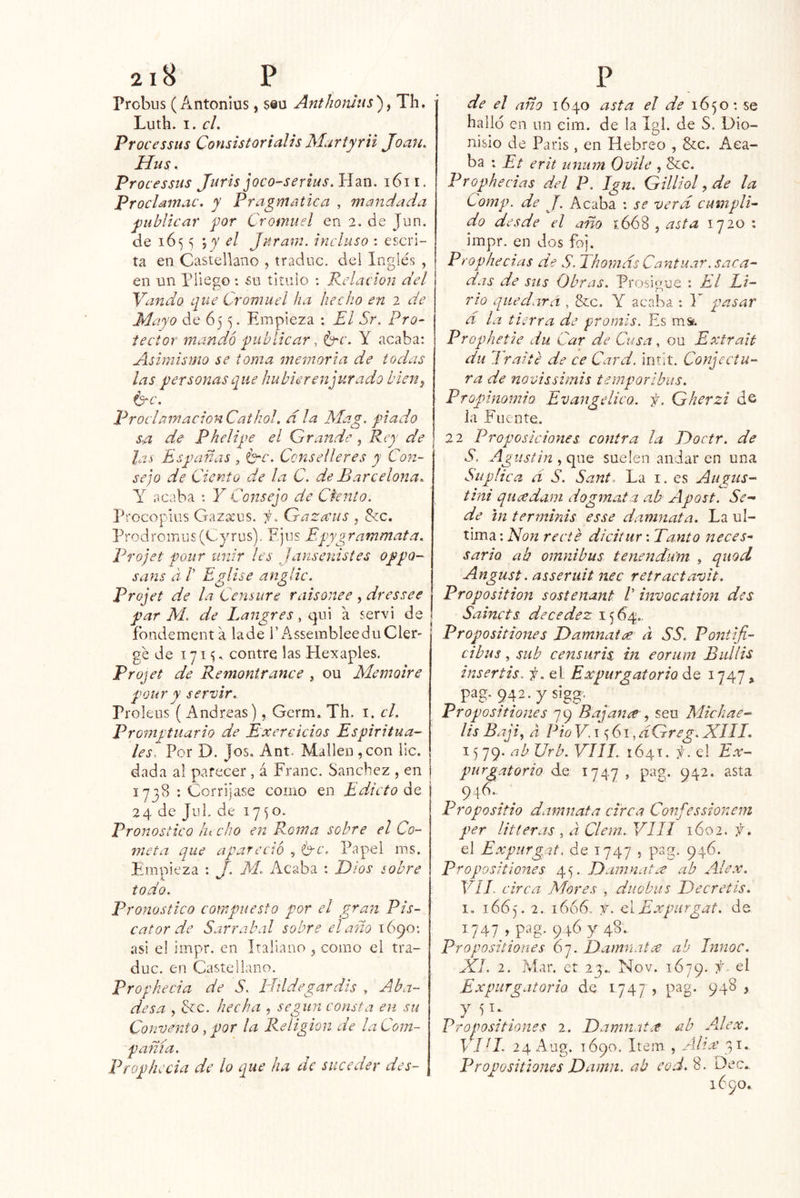 218 P
Probus (Antonius, seu Anthonius), Th.
Luth. 1. cl.
Processus Consistorialis Martyrii Joan.
Hus.
Processus Juris joco-serius. Han. 1611.
Proclamac. y Pragmatica, mandada
publicar por Cromuel en 2. de Jun.
de 1655; y el Juram. incluso: escri-
ta en Castellano, traduc. del Inglés,
en un Pliego: su titulo: Relacion del
Vando que Cromuel ha hecho en 2 de
Mayo de 655. Empieza: El Sr. Pro-
tector mandó publicar, &c. Y acaba:
Asimismo se toma memoria de todas
las personas que hubieren jurado bien,
&c.
Proclamacion Cathol. á la Mag. piado
sa de Phelipe el Grande, Rey de
las Españas, &c. Conselleres y Con-
sejo de Ciento de la C. de Barcelona.
Y acaba: Y Consejo de Ciento.
Procopius Gazæus. ỳ. Gazæus, &c.
Prodromus (Cyrus). Ejus Epygrammata.
Projet pour unir les Jansenistes oppo-
sans à l' Eglise anglic.
Projet de la Censure raisonee, dressee
par M. de Langres, qui à servi de
fondement à lade l'Assembleedu Cler-
gè de 1715. contre las Hexaples.
Projet de Remontrance, ou Memoire
pour y servir.
Proleus (Andreas), Germ. Th. 1. cl.
Promptuario de Exercicios Espiritua-
les. Por D. Jos. Ant. Mallen, con lic.
dada al parecer, á Franc. Sanchez, en
1738: Corrijase como en Edicto de
24 de Jul. de 1750.
Pronostico hecho en Roma sobre el Co-
meta que apareció, &c. Papel ms.
Empieza: J. M. Acaba: Dios sobre
todo.
Pronostico compuesto por el gran Pis-
cator de Sarrabal sobre el año 1690:
asi el impr. en Italiano, como el tra-
duc. en Castellano.
Prophecia de S. Hildegardis, Aba-
desa, &c. hecha, segun consta en su
Convento, por la Religion de la Com-
pañia.
Prophecia de lo que ha de suceder des-
P
de el año 1640 asta el de 1650: se
halló en un cim. de la Igl. de S. Dio-
nisio de Paris, en Hebreo, &c. Aca-
ba: Et erit unum Ovile, &c.
Prophecias del P. Ign. Gilliol, de la
Comp. de J. Acaba: se verá cumpli-
do desde el año 1668, asta 1720:
impr. en dos foj.
Prophecias de S. Thomás Cantuar. saca-
das de sus Obras. Prosigue: El Li-
rio quedará, &c. Y acaba: Y pasar
á la tierra de promis. Es ms.
Prophetie du Car de Cusa, ou Extrait
du Traitè de ce Card. intit. Conjectu-
ra de novissimis temporibus.
Propinomio Evangelico. ỳ. Gherzi de
la Fuente.
22 Proposiciones contra la Doctr. de
S. Agustin, que suelen andar en una
Suplica á S. Sant. La 1. es Augus-
tini quædam dogmata ab Apost. Se-
de in terminis esse damnata. La ul-
tima: Non rectè dicitur: Tanto neces-
sario ab omnibus tenendum, quod
August. asseruit nec retractavit.
Proposition sostenant l' invocation des
Saincts decedez 1564.
Propositiones Damnatæ à SS. Pontifi-
cibus, sub censuris in eorum Bullis
insertis. ỳ. el Expurgatorio de 1747,
pag. 942. y sigg.
Propositiones 79 Bajanæ, seu Michae-
lis Baji, à Pio V. 1561, à Greg. XIII.
1579. ab Urb. VIII. 1641. ỳ. el Ex-
purgatorio de 1747, pag. 942. asta
946.
Propositio damnata circa Confessionem
per litteras, à Clem. VIII 1602. ỳ.
el Expurgat. de 1747, pag. 946.
Propositiones 45. Damnatæ ab Alex.
VII. circa Mores, duobus Decretis.
1. 1665. 2. 1666. ỳ. el Expurgat. de
1747, pag. 946 y 48.
Propositiones 67. Damnatæ ab Innoc.
XI. 2. Mar. et 23. Nov. 1679. ỳ. el
Expurgatorio de 1747, pag. 948,
y 51.
Propositiones 2. Damnatæ ab Alex.
VIII. 24 Aug. 1690. Item, Aliæ 31.
Propositiones Damn. ab eod. 8. Dec.
1690.